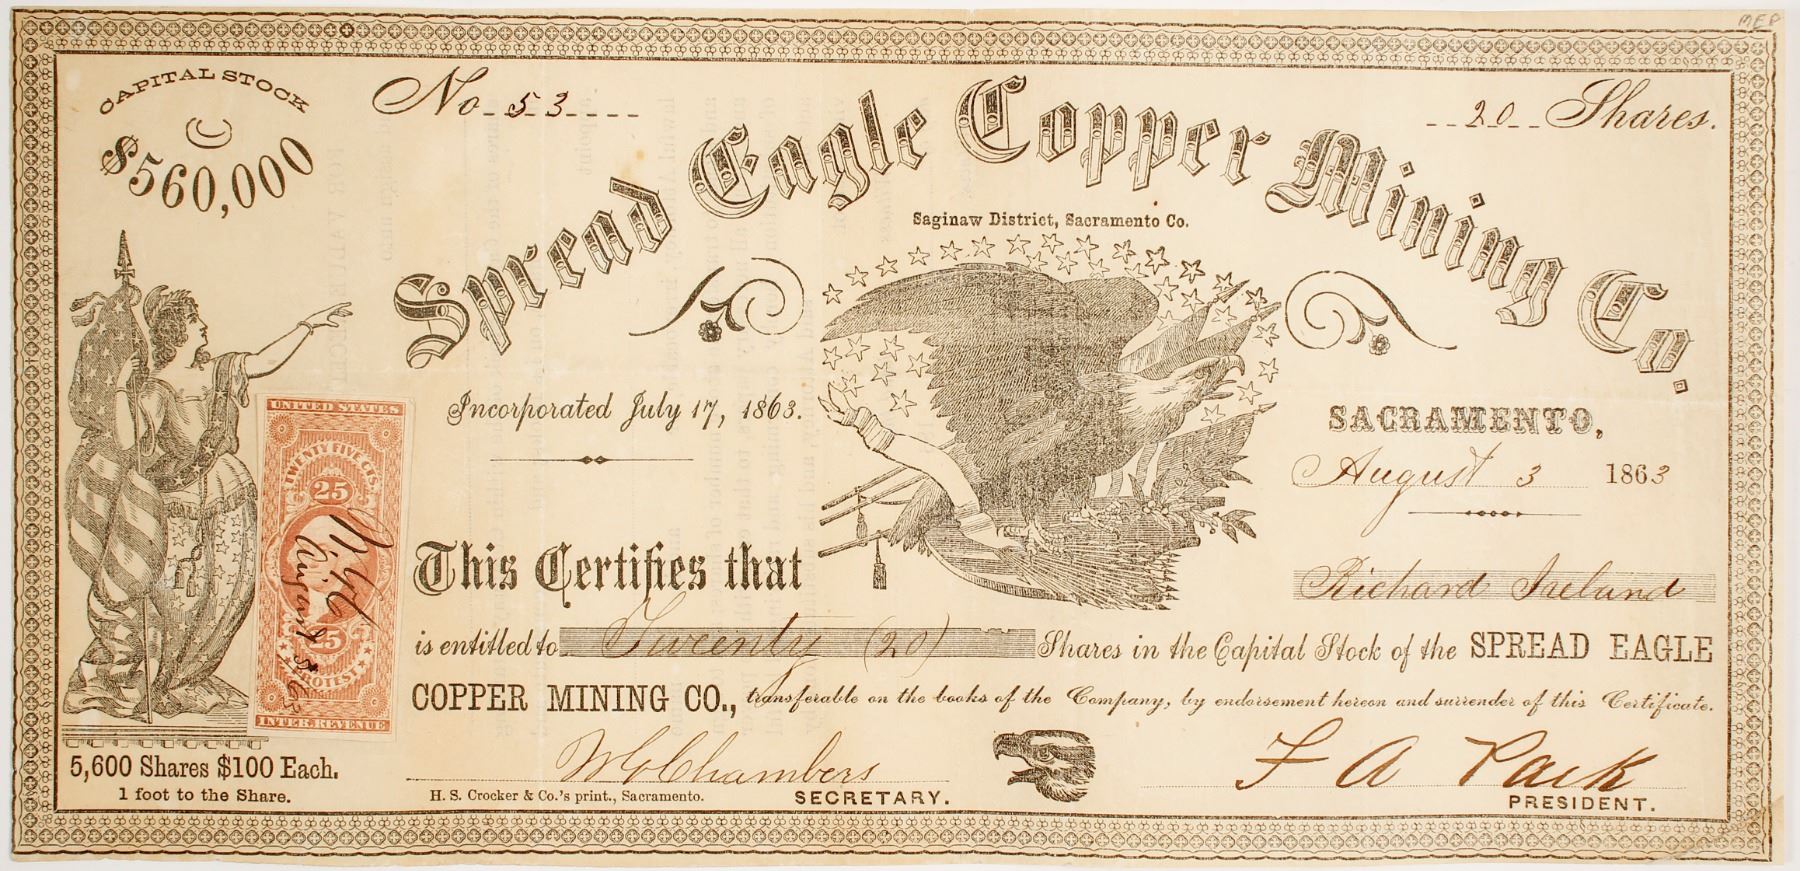 MEP
CAPITAL STOCK
$560,000
No. 53
20 Shares.
Spread Eagle Copper Mining Co.
Saginaw District, Sacramento Co.
Incorporated July 17, 1863.
SACRAMENTO,
August 3 1863
UNITED STATES
TWENTY FIVE CTS.
25
August
25
PROTEST
INTER. REVENUE
This Certifies that
Richard Ireland
is entitled to Twenty (20) Shares in the Capital Stock of the SPREAD EAGLE
COPPER MINING CO., transferable on the books of the Company, by endorsement hereon and surrender of this Certificate.
5,600 Shares $100 Each.
1 foot to the Share.
W C Chambers
SECRETARY.
H. S. Crocker & Co.'s print., Sacramento.
F A Park
PRESIDENT.